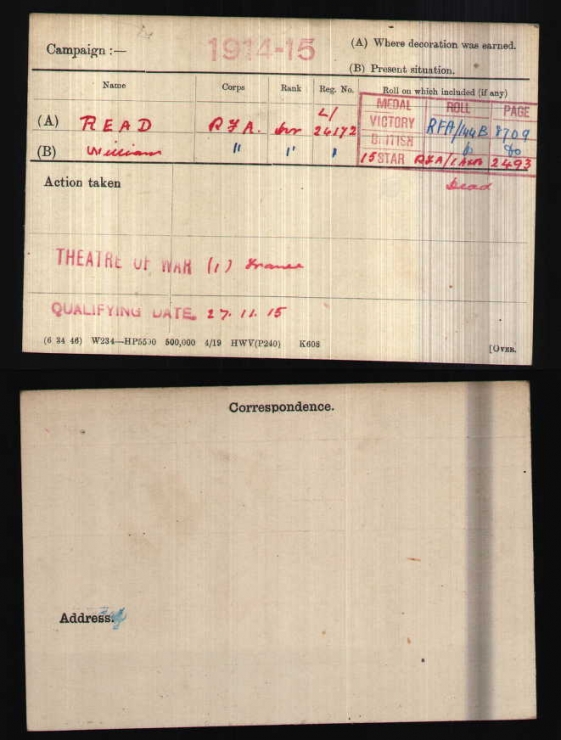 Campaign :—
1914-15
(A) Where decoration was earned.
(B) Present situation.
Name Corps Rank Reg. No. Roll on which included (if any)
MEDAL ROLL PAGE
(A) READ R.F.A. L/ 24172
VICTORY RFA/144B 8709
(B) William " " "
BRITISH do do
15 STAR RFA/ 2493
Action taken
Dead
THEATRE OF WAR (1) France
QUALIFYING DATE 27. 11. 15
(6 34 46) W234—HP5590 500,000 4/19 HWV(P240) K608
[OVER.
Correspondence.
Address.